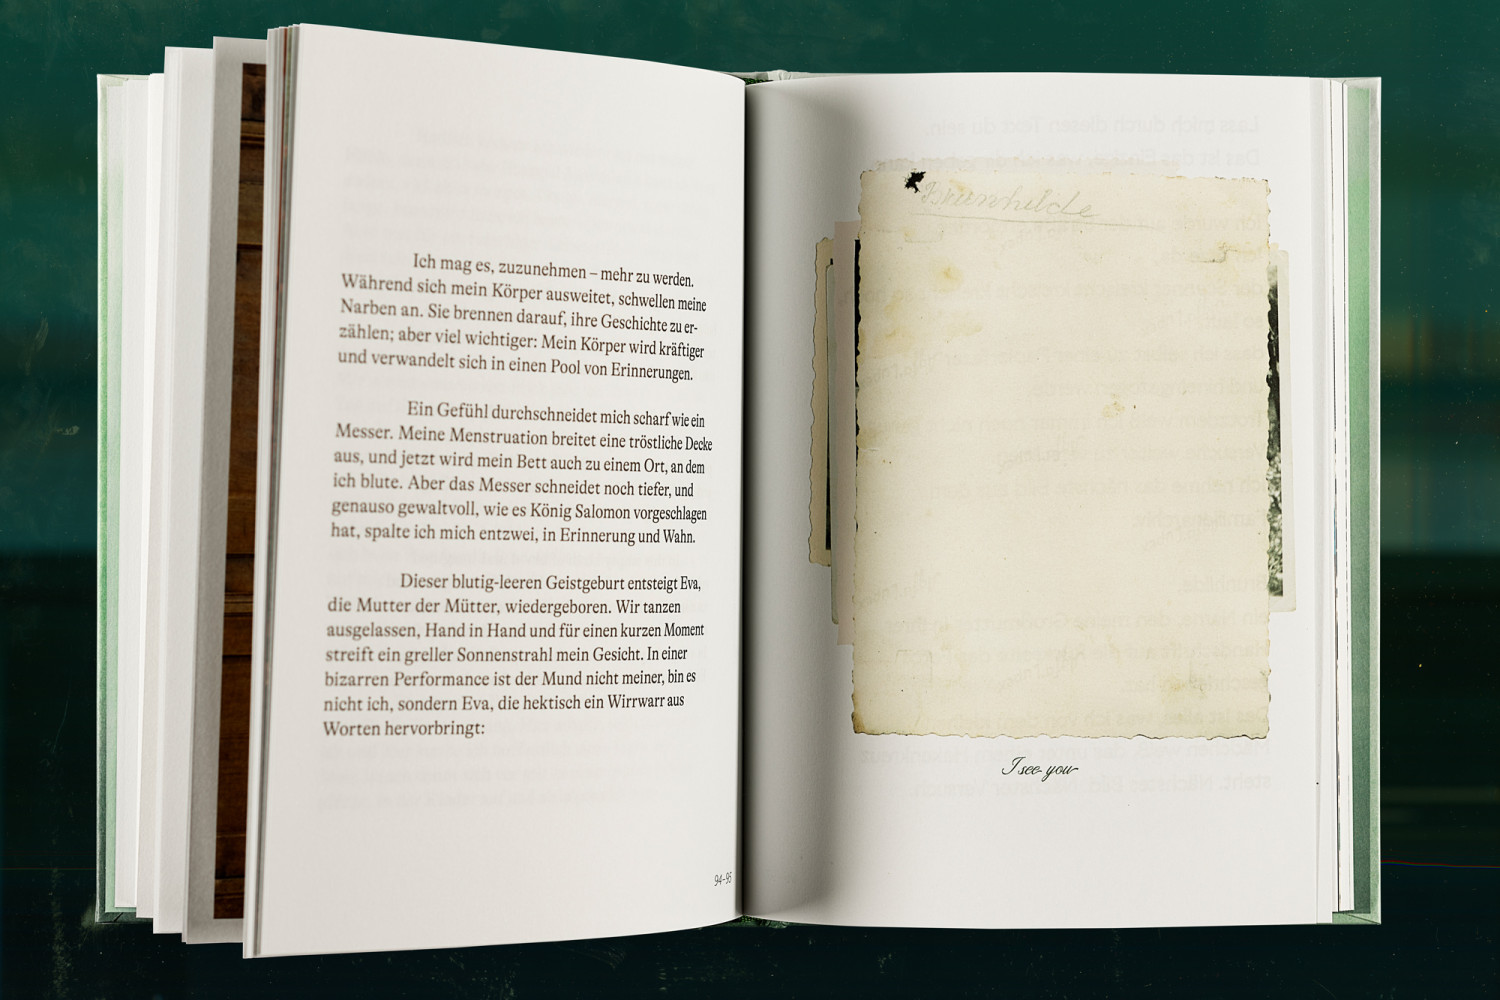 Ich mag es, zuzunehmen – mehr zu werden.
Während sich mein Körper ausweitet, schwellen meine
Narben an. Sie brennen darauf, ihre Geschichte zu er-
zählen; aber viel wichtiger: Mein Körper wird kräftiger
und verwandelt sich in einen Pool von Erinnerungen.
Ein Gefühl durchschneidet mich scharf wie ein
Messer. Meine Menstruation breitet eine tröstliche Decke
aus, und jetzt wird mein Bett auch zu einem Ort, an dem
ich blute. Aber das Messer schneidet noch tiefer, und
genauso gewaltvoll, wie es König Salomon vorgeschlagen
hat, spalte ich mich entzwei, in Erinnerung und Wahn.
Dieser blutig-leeren Geistgeburt entsteigt Eva,
die Mutter der Mütter, wiedergeboren. Wir tanzen
ausgelassen, Hand in Hand und für einen kurzen Moment
streift ein greller Sonnenstrahl mein Gesicht. In einer
bizarren Performance ist der Mund nicht meiner, bin es
nicht ich, sondern Eva, die hektisch ein Wirrwarr aus
Worten hervorbringt:
94–95
Brunhilde
I see you